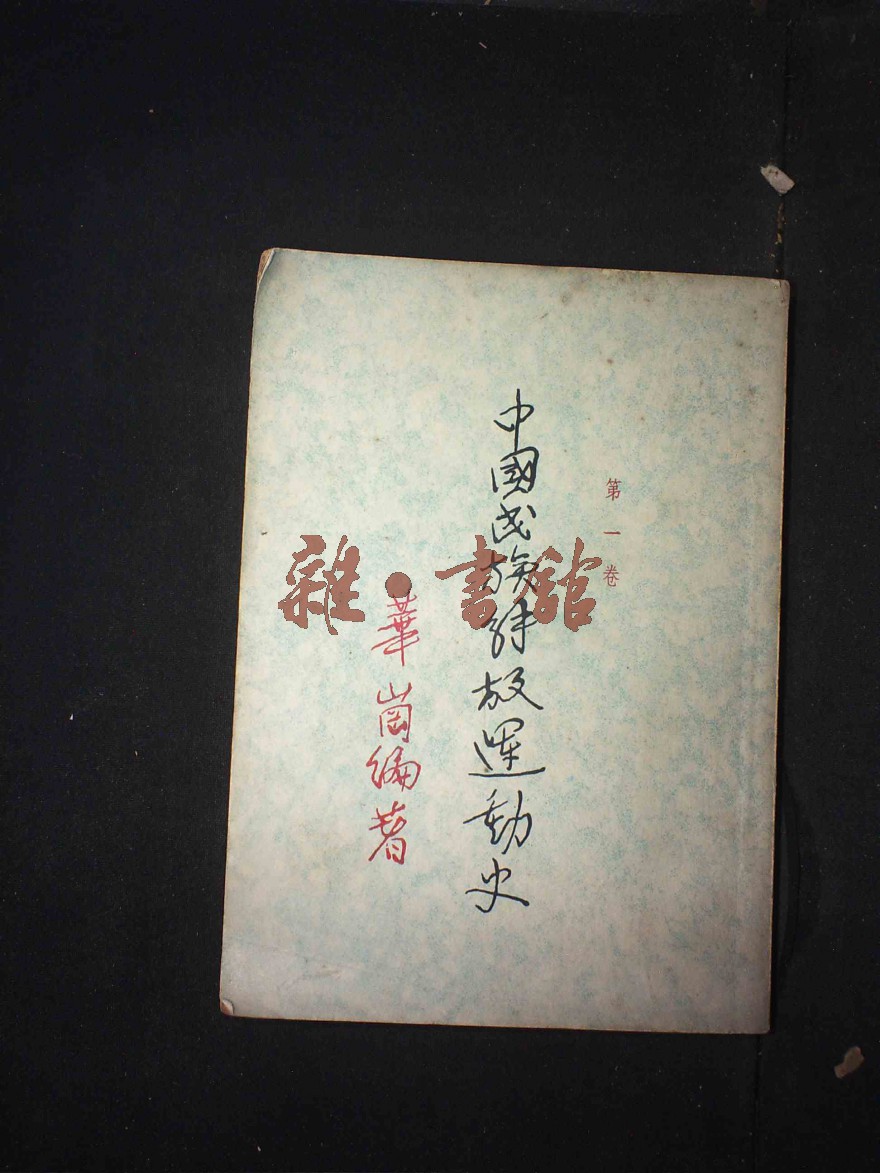 第一卷
中國民族解放運動史
華崗編著
雜·書館